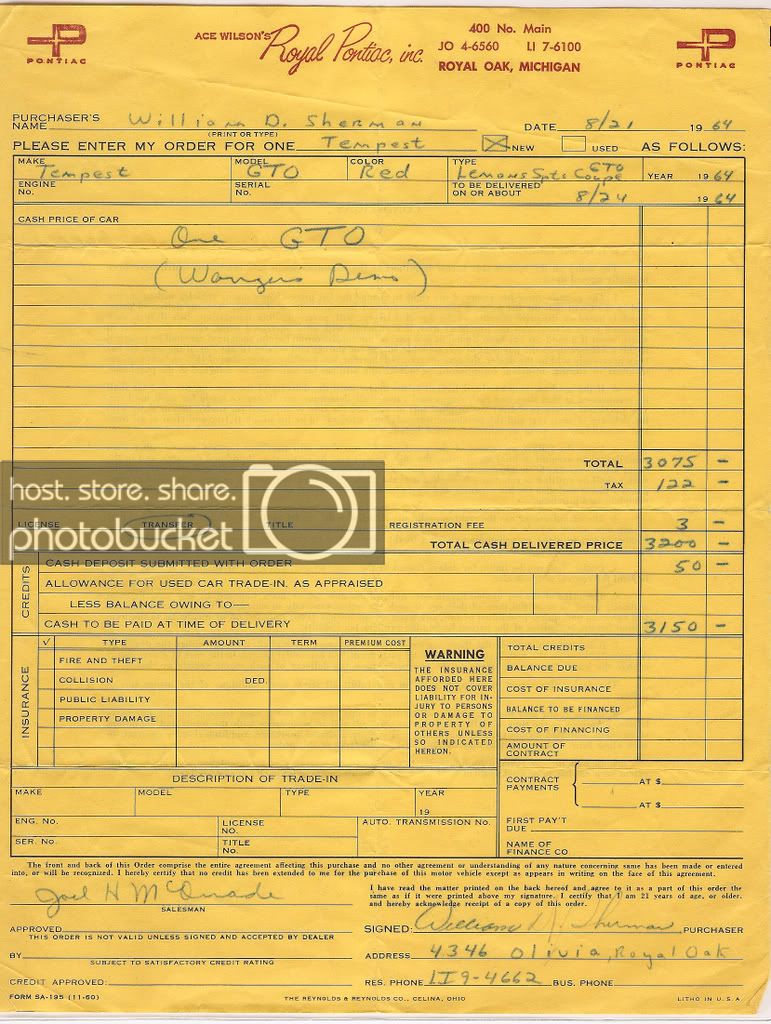 PONTIAC
ACE WILSON'S Royal Pontiac, inc.
400 No. Main
JO 4-6560 LI 7-6100
ROYAL OAK, MICHIGAN
PONTIAC
PURCHASER'S NAME William D. Sherman DATE 8/21 1964
(PRINT OR TYPE)
PLEASE ENTER MY ORDER FOR ONE Tempest NEW USED AS FOLLOWS:
MAKE Tempest MODEL GTO COLOR Red TYPE Lemans Spts Coupe GTO YEAR 1964
ENGINE No. SERIAL No. TO BE DELIVERED ON OR ABOUT 8/24 1964
CASH PRICE OF CAR
One GTO
(Wangers Demo)
TOTAL 3075 –
TAX 122 –
host. store. share.
photobucket
LICENSE TRANSFER TITLE REGISTRATION FEE 3 –
TOTAL CASH DELIVERED PRICE 3200 –
CREDITS
CASH DEPOSIT SUBMITTED WITH ORDER 50 –
ALLOWANCE FOR USED CAR TRADE-IN. AS APPRAISED
LESS BALANCE OWING TO—
CASH TO BE PAID AT TIME OF DELIVERY 3150 –
INSURANCE
√ TYPE AMOUNT TERM PREMIUM COST
FIRE AND THEFT
COLLISION DED.
PUBLIC LIABILITY
PROPERTY DAMAGE
WARNING
THE INSURANCE
AFFORDED HERE
DOES NOT COVER
LIABILITY FOR IN-
JURY TO PERSONS
OR DAMAGE TO
PROPERTY OF
OTHERS UNLESS
SO INDICATED
HEREON.
TOTAL CREDITS
BALANCE DUE
COST OF INSURANCE
BALANCE TO BE FINANCED
COST OF FINANCING
AMOUNT OF CONTRACT
DESCRIPTION OF TRADE-IN
MAKE MODEL TYPE YEAR 19
ENG. No. LICENSE NO. AUTO. TRANSMISSION No.
SER. No. TITLE No.
CONTRACT PAYMENTS AT $
AT $
FIRST PAY'T DUE
NAME OF FINANCE CO
The front and back of this Order comprise the entire agreement affecting this purchase and no other agreement or understanding of any nature concerning same has been made or entered
into, or will be recognized. I hereby certify that no credit has been extended to me for the purchase of this motor vehicle except as appears in writing on the face of this agreement.
Joel H McQuade
SALESMAN
I have read the matter printed on the back hereof and agree to it as a part of this order the
same as if it were printed above my signature. I certify that I am 21 years of age, or older,
and hereby acknowledge receipt of a copy of this order.
APPROVED
THIS ORDER IS NOT VALID UNLESS SIGNED AND ACCEPTED BY DEALER
SIGNED: William D. Sherman PURCHASER
BY
SUBJECT TO SATISFACTORY CREDIT RATING
ADDRESS 4346 Olivia, Royal Oak
CREDIT APPROVED:
RES. PHONE LI9-4662 BUS. PHONE
FORM SA-195 (11-60) THE REYNOLDS & REYNOLDS CO., CELINA, OHIO LITHO IN U.S.A